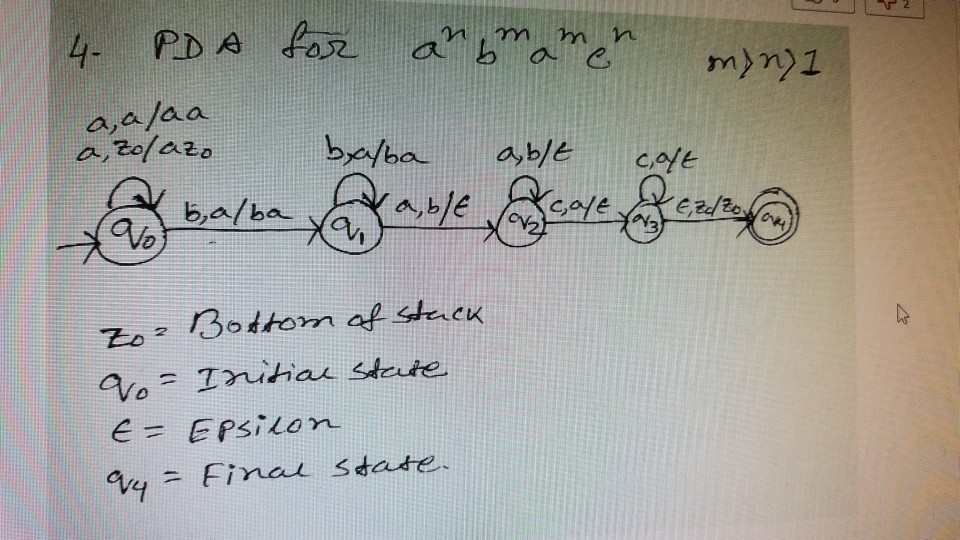 4- PDA for aⁿ bᵐ aᵐ cⁿ m>n>1
a,a/aa
a,z₀/az₀
b,a/ba
a,b/ϵ
c,a/ϵ
b,a/ba
a,b/ϵ
c,a/ϵ
ϵ,z₀/z₀
q₀
q₁
q₂
q₃
q₄
z₀ = Bottom of stack
q₀ = Initial state
ϵ = Epsilon
q₄ = Final state.